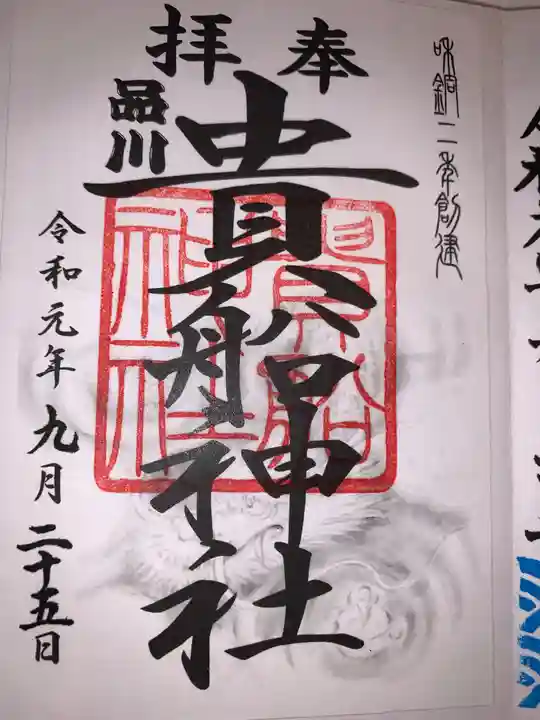 奉拝
和銅二年創建
品川
貴船神社
貴船
神社
令和元年九月二十五日